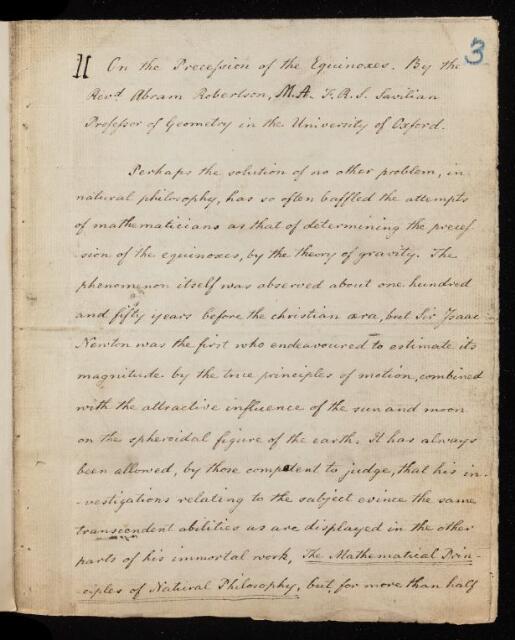 3
II On the Precession of the Equinoxes. By the
Revd Abram Robertson, M.A. F.R.S. Savilian
Professor of Geometry in the University of Oxford.
Perhaps the solution of no other problem, in
natural philosophy, has so often baffled the attempts
of mathematicians as that of determining the preces-
sion of the equinoxes, by the theory of gravity. The
phenomenon itself was observed about one hundred
and fifty years before the christian æra, but Sir Isaac
Newton was the first who endeavoured to estimate its
magnitude by the true principles of motion, combined
with the attractive influence of the sun and moon
on the spheroidal figure of the earth. It has always
been allowed, by those competent to judge, that his in-
-vestigations relating to the subject evince the same
transcendent abilities as are displayed in the other
parts of his immortal work, The Mathematical Prin-
-ciples of Natural Philosophy, but, for more than half